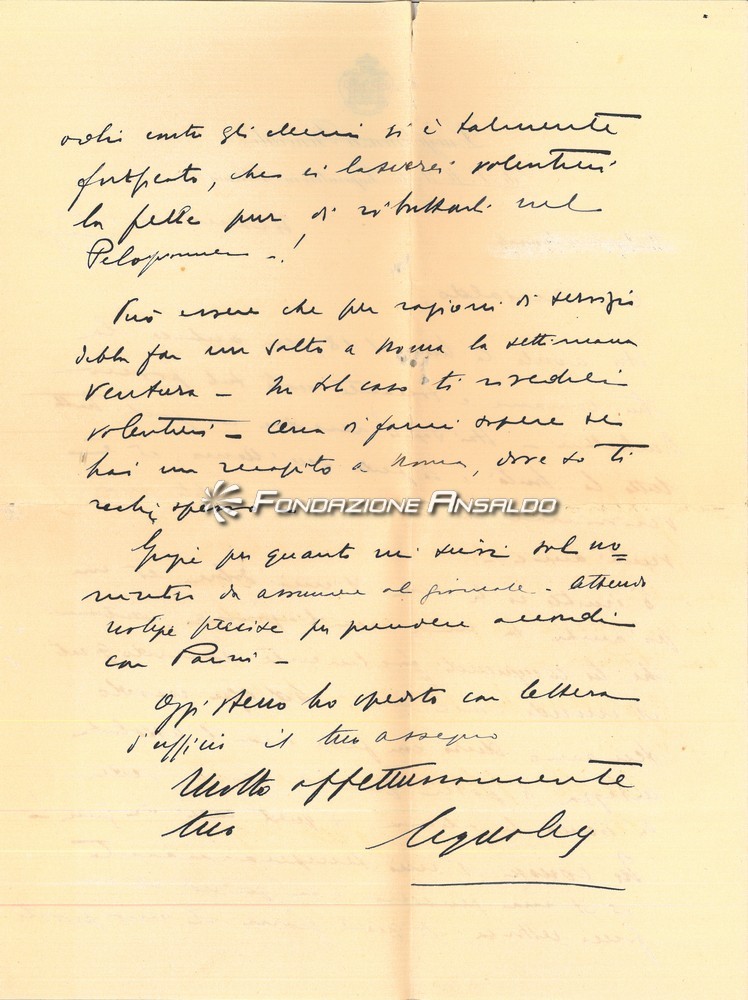 contro gli elleni si è talmente
fortificato, che ci lascerei volentieri
la pelle pur di ributtarli nel
Peloponneso - !
Può essere che per ragioni di servizio
debba far un salto a Roma la settimana
ventura - In tal caso ti rivedrei
volentieri - Cerca di farmi sapere se
hai un recapito a Roma, dove so ti
rechi spesso -
FONDAZIONE ANSALDO
Grazie per quanto mi scrivi sul no=
da assumere al giornale - Attendo
notizie precise per prendere accordi
con Parini -
Oggi stesso ho spedito con lettera
d'ufficio il tuo assegno
Molto affettuosamente
tuo